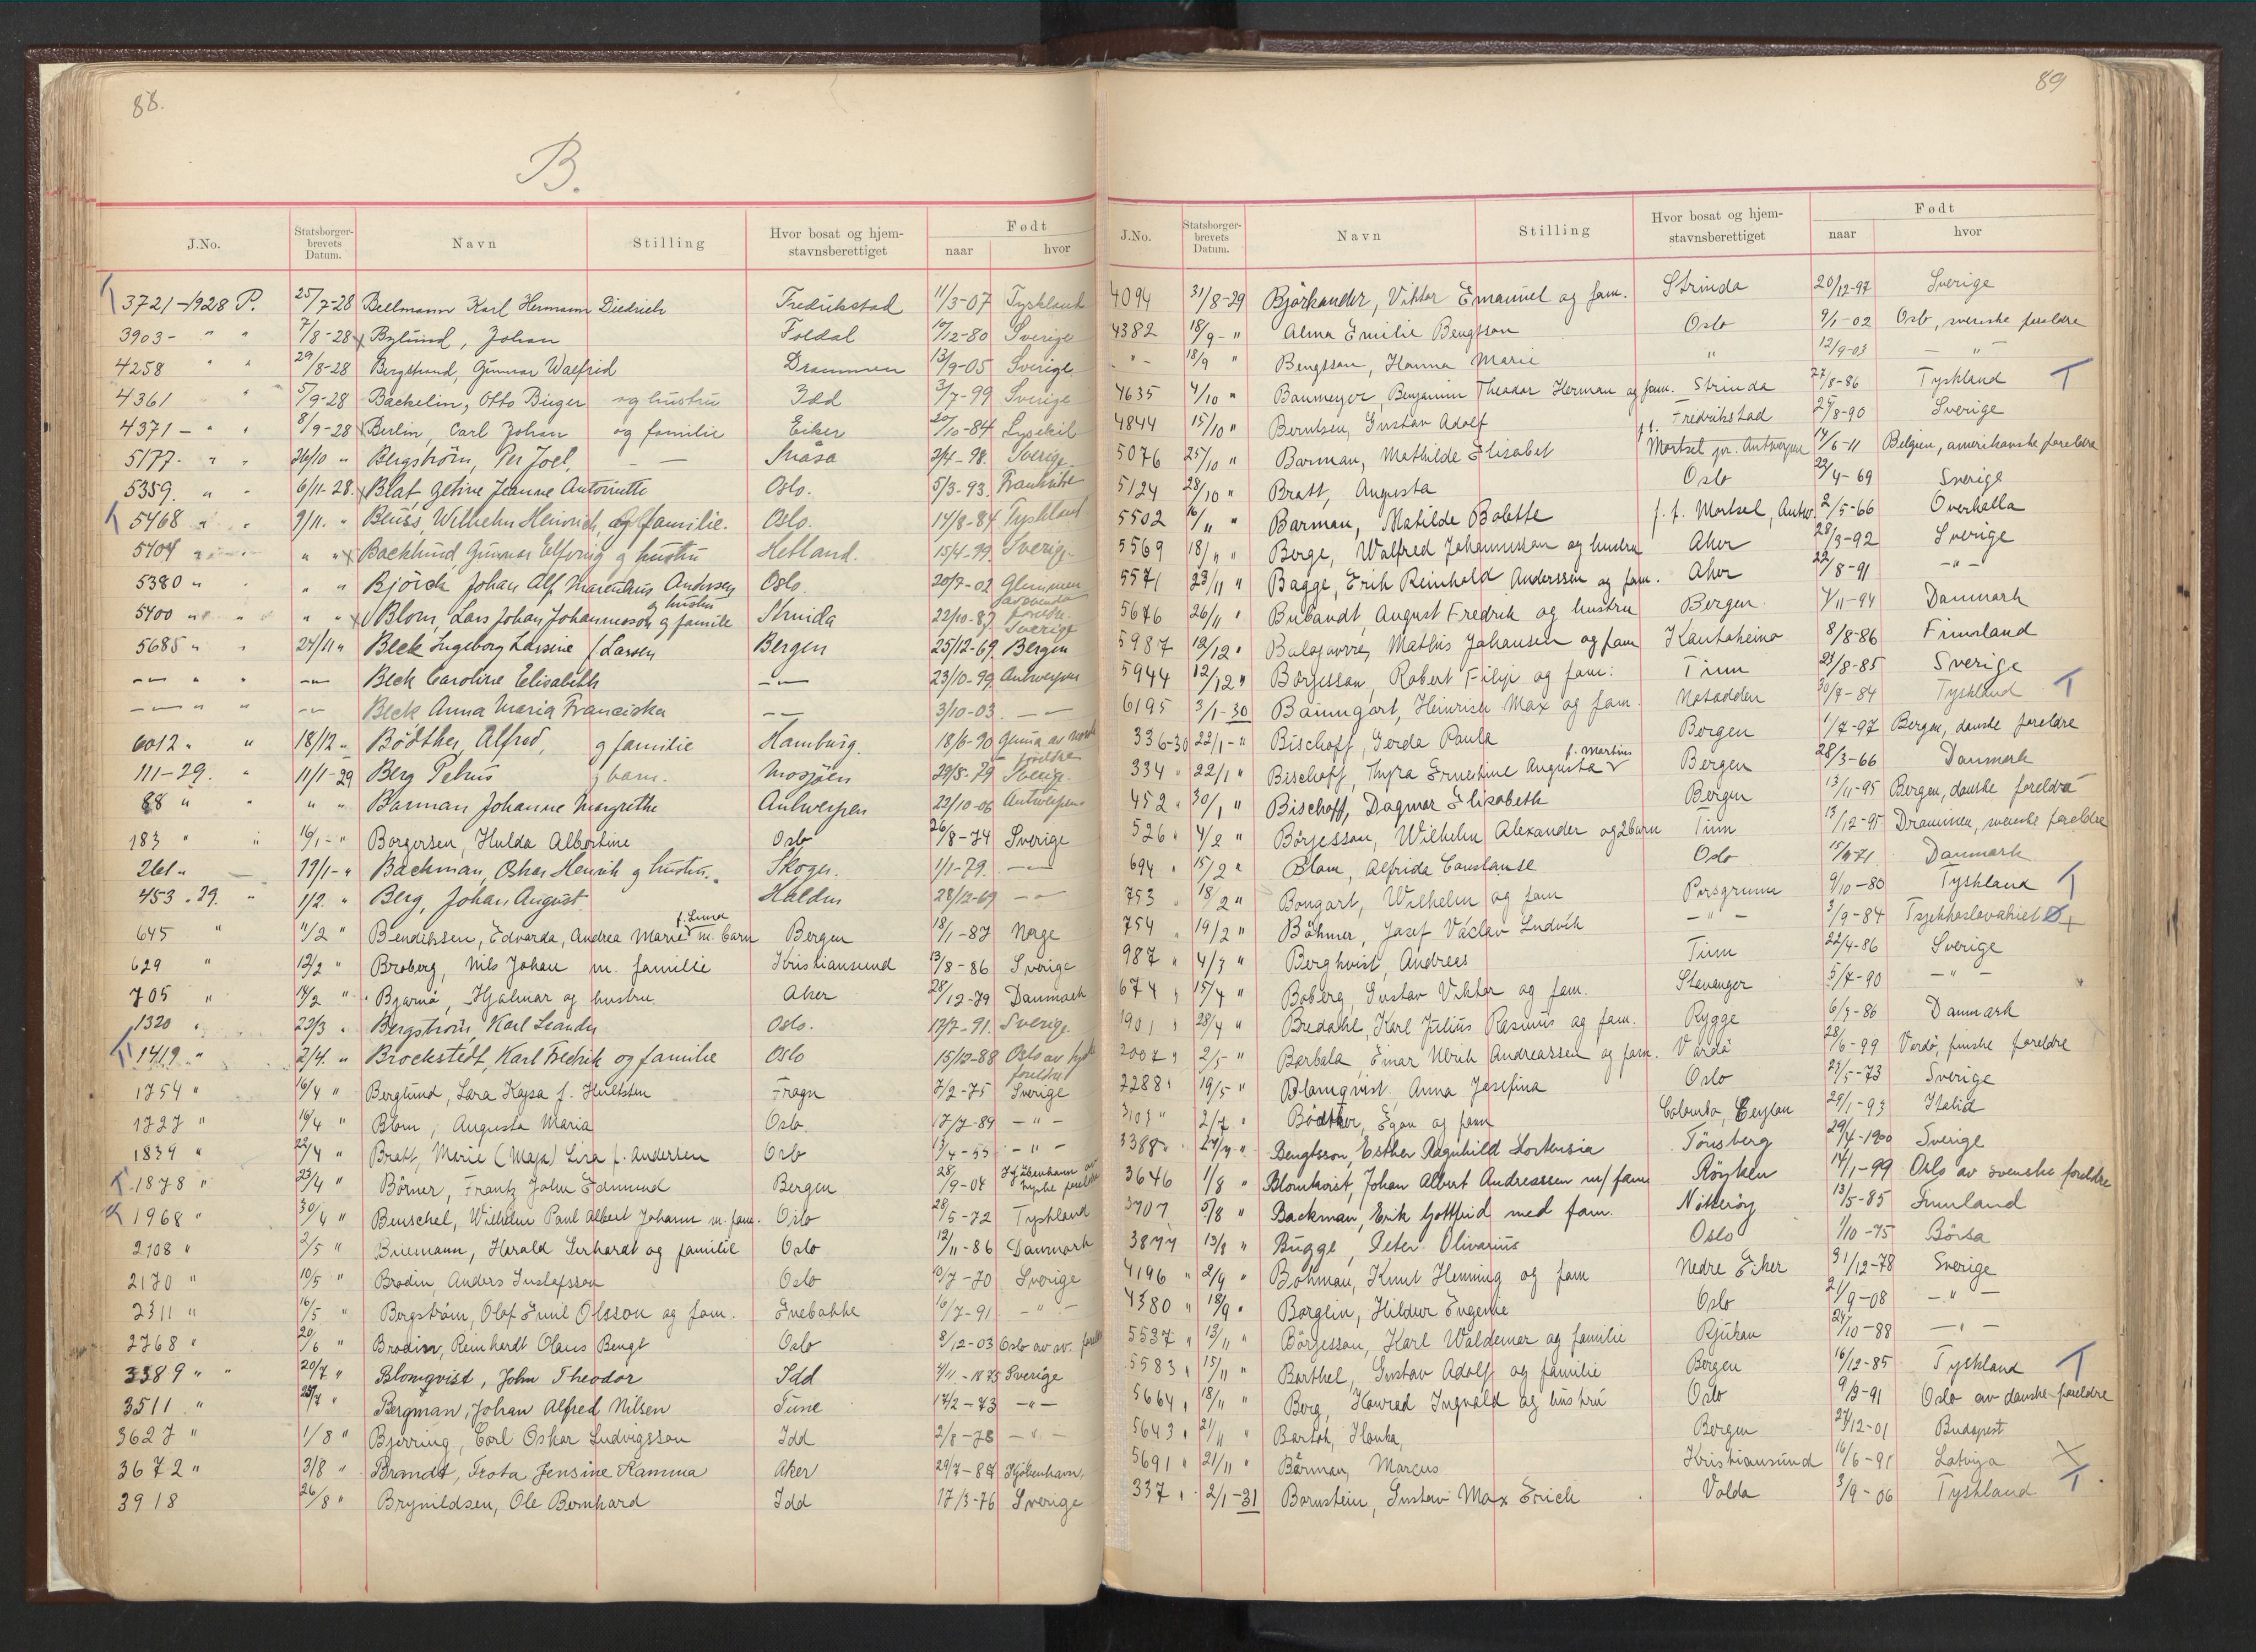 88.
B.
J.No. Statsborger-brevets Datum. Navn Stilling Hvor bosat og hjem-stavnsberettiget Født naar hvor
3721-1928 P. 25/7-28 Bellmann Karl Hermann Diedrich Fredrikstad 11/3-07 Tyskland
3903- " " 7/8-28 Bylund, Johan Foldal 10/12-80 Sverige
4258 " " 29/8-28 Bergstrand, Gunnar Walfrid Drammen 13/9-05 Sverige.
4361 " 5/9-28 Backelin, Otto Birger og hustru Idd 3/7-99 Sverige
4371- " " 8/9-28 Berlin, Carl Johan og familie Eiker 20/10-84 Lysekil
5177- " " 26/10 " Bergström, Per Joel, — — Snåsa 2/4-98. Sverige
5359. " " 6/11-28. Blat Zetine Jeanne Antoinette Oslo. 5/3-93. Frankrike
T 5468 " " 9/11. " Beuss, Wilhelm Heinrich, og familie. Oslo. 14/8-84 Tyskland
5404 " " " Backlund, Gunnar Elfving g hustru Hetland. 15/4-99. Sverige
5380 " " " Björck Johan Alf Marenius Andersen Oslo. 20/7-02 Glemmen
5400 " " " Blom, Lars Johan Johannesson g familie Strinda 22/10-87 Sverige
5685 " " 24/11 " Beck Ingeborg Lassine f Larsen Bergen 25/12-69 Bergen
—"— " " —"— Beck Caroline Elisabeth —"— 23/10-99 Antwerpen
—"— " " —"— Beck Anna Maria Franciska —"— 3/10-03. —"—
6012 " " 18/12 " Bödtker, Alfred, g familie Hamburg. 18/6-90 Genua av norske foreldre
111-29. " 11/1-29 Berg Petrus g barn. Mosjöen 29/5-79 Sverige.
88 " " " " Barman Johanne Margrethe Antwerpen 22/10-06 Antwerpen
183 " " 16/1- " Borgersen, Hulda Albertine Oslo 26/8-74 Sverige
261 " — 19/1- " Backman, Oskar Henrik g hustru. Skoger. 1/1-79. —"—
453.29. " 1/2. " Berg, Johan August Halden 28/12-69 —"—
645 " 11/2 " Bendiksen, Edvarda, Andrea Marie f. Lund m. barn Bergen 18/1-87 Norge
629 " 12/2 " Broberg, Nils Johan m. familie Kristiansund 13/8-86 Sverige
705 " 14/2 " Bjarnö, Hjalmar og hustru Aker 28/12-79 Danmark
1320 " 23/3 " Bergström, Karl Leander Oslo. 17/7-91. Sverige
T 1419 " 2/4. " Brockstedt, Karl Fredrik og familie Oslo 15/12-88 Oslo av tyske foreldre
1754 " 16/4 " Berglund, Lara Kajsa f. Hultsten Frogn 7/2-75 Sverige
1727 " 16/4 " Blom, Augusta Maria Oslo. 17/7-89 — " —
1839 " 22/4 " Bratt, Marie (Maja) Lisa f. Andersen Oslo 13/4-53 — " —
T 1878 " 23/4 " Börner, Frantz John Edmund Bergen 28/9-04 Kjöbenhavn av tyske foreldre
T 1968 " 30/4 " Benschel, Wilhelm Paul Albert Johann m. fam. Oslo 28/5-72 Tyskland
2108 " 2/5 " Briemann, Harald Gerhardt og familie Oslo 12/11-86 Danmark
2170 " 10/5 " Brodin, Anders Gustafsson Oslo 10/7-70 Sverige
2311 " 16/5 " Bergström, Olof Emil Olsson og fam. Enebakk 16/7-91 — " —
2768 " 20/6 " Brodin, Reinhardt Olaus Bengt Oslo 8/12-03 Oslo av sv. foreldre
3389 " " 20/7 " Blomqvist, John Theodor Idd 4/11-1875 Sverige
3511 " 25/7 " Bergman, Johan Alfred Nilsen Tune 17/2-73 —"—
3627 " 1/8 " Bjerring, Carl Oskar Ludvigsson Idd 2/8-78 —"—
3672 " 3/8 " Brandt, Trota Jensine Kamma Aker 29/7-87 Kjöbenhavn.
3918 26/8 " Brynildsen, Ole Bernhard Idd 17/3-76 Sverige
89
J.No. Statsborger-brevets Datum. Navn Stilling Hvor bosat og hjem-stavnsberettiget Født naar hvor
4094 31/8-29 Björkander, Viktor Emanuel og fam. Strinda 20/12-97 Sverige
4382 18/9- " Alma Emilie Bengtson Oslo 9/1-02 Oslo, svenske foreldre
" - 18/9 " Bengtsson, Hanna Marie " 12/9-03 — " —
4635 4/10 " Baumeyer, Benjamin Theodor Herman og fam. Strinda 27/8-86 Tyskland T
4844 15/10 " Berntsen, Gustav Adolf Fredrikstad 25/8-90 Sverige
5076 25/10 " Barman, Mathilde Elisabet Mortsel pr. Antwerpen 14/6-11 Belgien, amerikanske foreldre
5124 28/10 " Bratt, Augusta Oslo 22/4-69 Sverige
5502 16/11 " Barman, Matilde Bolette f. f. Mortsel, Antw. 2/5-66 Överhalla
5569 18/11 " Berge, Walfred Johannesson og hustru Aker 28/3-92 Sverige
5571 23/11 " Bagge, Erik Reinhold Anderssen og fam. Aker 22/8-91 —"—
5676 26/11 " Bubandt, August Fredrik og hustru Bergen 4/11-94 Danmark
5987 12/12 " Balojavvre, Mathis Johansen og fam Kautokeino 8/8-86 Finnland
5944 12/12 " Börjesson, Robert Filip og fam: Tinn 23/8-85 Sverige
6195 3/1-30 Baumgart, Heinrich Max og fam. Notodden 30/7-84 Tyskland T
336-30 22/1- " Bischoff, Gerda Paula Bergen 1/7-97 Bergen, danske foreldre
334 " 22/1 " Bischoff, Thyra Ernestine Augusta f. Martins Bergen 28/3-66 Danmark
452 " 30/1 " Bischoff, Dagmar Elisabeth Bergen 13/11-95 Bergen, danske foreldre
526 " 4/2 " Börjesson, Wilhelm Alexander og 2 barn Tinn 13/12-95 Drammen, svenske foreldre
694 " 15/2 " Blom, Alfrida Constanse Oslo Danmark
753 " 18/2 " Bongart, Wilhelm og fam Porsgrunn 9/10-80 Tyskland T
754 " 19/2 " Böhmer, Josef Václav Ludvik — " — 3/9-84 Tsjekkoslovakiet
987 " 4/3 " Berghvist, Andreas Tinn 22/4-86 Sverige
674 " 15/4 " Boberg, Gustav Viktor og fam. Stavanger 5/7-90 — " —
1901 " 28/4 " Bredahl, Karl Julius Rasmus og fam. Rygge 6/3-86 Danmark
2002 " 2/5- " Barbala, Einar Ulrik Andreassen og fam. Vardö 28/6-99 Vardö, finske foreldre
2288 " 19/5- " Blomqvist, Anna Josefina Oslo 23/5-73 Sverige
3103 " 2/7 " Bödtker, Egon og fam Colombo, Ceylon 29/1-93 Italia
3388 " 27/7 " Bengtsson, Esther Ragnhild Hortensia Tönsberg 29/4-1900 Sverige
3646 1/8 " Blomkvist, Johan Albert Andreassen m/fam Röyken 14/1-99 Oslo av svenske foreldre
3707 5/8 " Backman, Erik Gottfrid med fam. Nötteröy 13/5-85 Finnland
3877 13/8 " Bugge, Peter Olivarius Oslo 1/10-75 Börsa
4196 " 2/9 " Bohman, Knut Henning og fam Nedre Eiker 31/12-78 Sverige
4380 " 18/9 " Borglin, Hildur Eugenie Oslo 21/9-08 — " —
5537 " 13/11 " Börjesson, Karl Waldemar og familie Rjukan 24/10-88 — " —
5583 " 15/11 " Barthel, Gustav Adolf og familie Bergen 16/12-85 Tyskland T
5664 " 18/11 " Berg, Konrad Ingvald og hustru Oslo 9/3-91 Oslo av danske foreldre
5643 " 21/11 " Bartok, Ilonka, Bergen 27/12-01 Budapest
5691 " 21/11 " Bärman, Marcus Kristiansund 16/6-91 Latvija
337 " 2/1-31 Bornstein, Gustav Max Erich Volda 3/9-06 Tyskland T